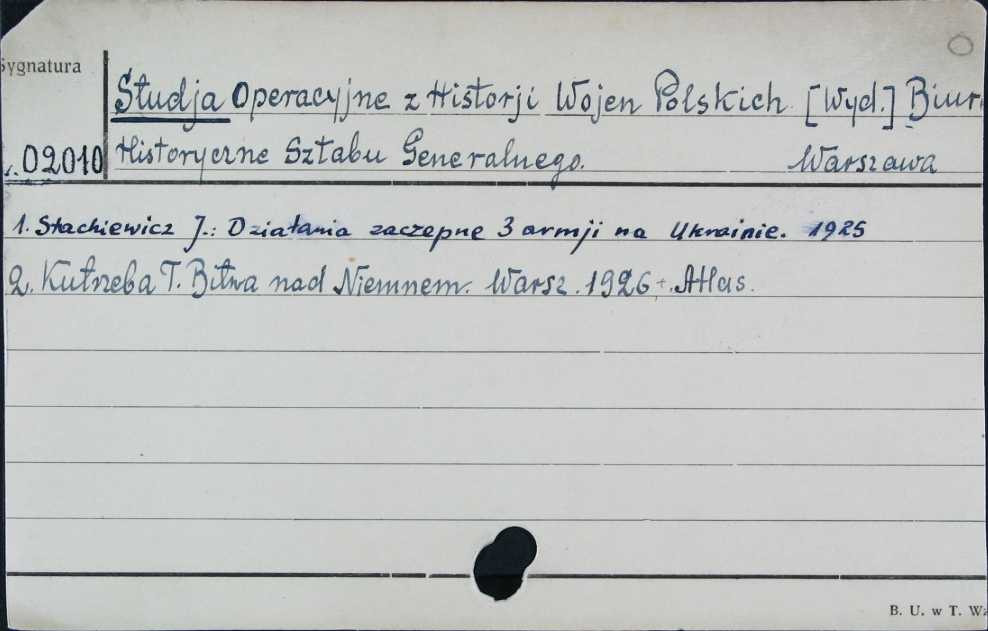 Sygnatura
Studja Operacyjne z Historji Wojen Polskich. [Wyd.] Biur
02010 Historyczne Sztabu Generalnego. Warszawa
1. Stachiewicz J.: Działania zaczepne 3 armji na Ukrainie. 1925
2. Kutrzeba T. Bitwa nad Niemnem. Warsz. 1926 +. Atlas.
B. U. w T. Wz